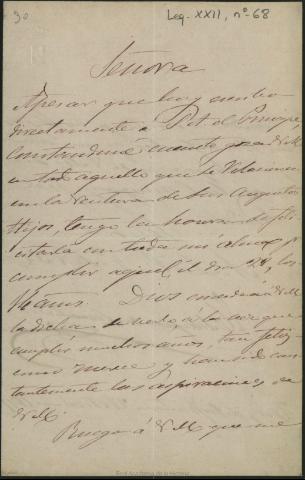 Leg. XXII, nº 68
90
Señora
Apesar que hoy escribo
directamente a S. A. el Principe
cuanto goza V M
en todo aquello que se relaciona
con la ventura de sus Augustos
Hijos, tengo la honra de feli-
citarla con toda mi alma p
cumplir aquel, el dia 28, los
años. Dios concederá á V M
la dicha de verlo, á la vez que
cumplir muchos años, tan feliz
como merece y llenando cons-
tantemente las aspiraciones de
V M.
Ruego á V M que me
Real Academia de la Historia